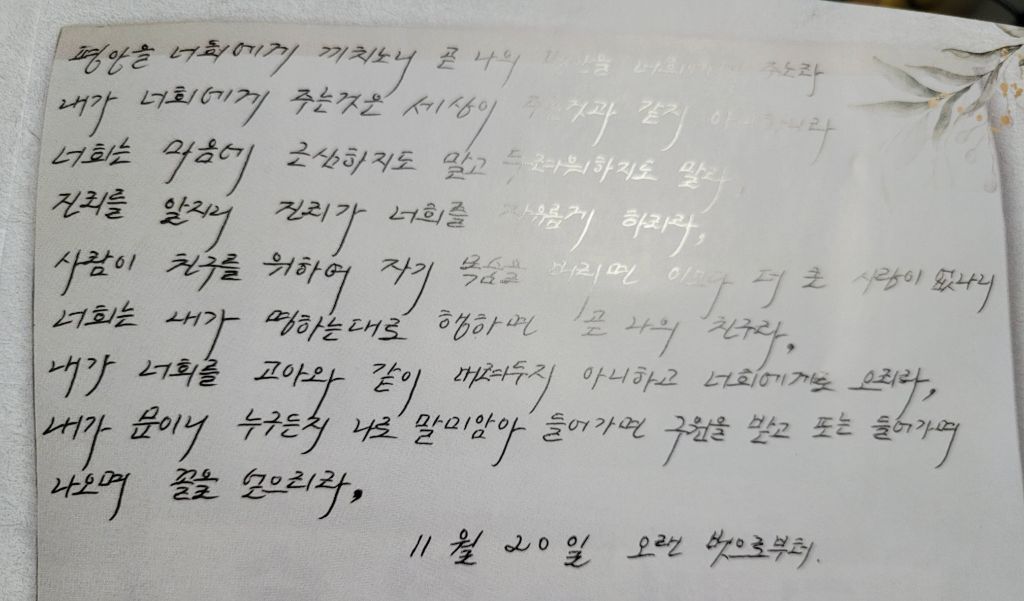 평안을 너희에게 끼치노니 곧 나의 평안을 너희에게 주노라
내가 너희에게 주는것은 세상이 주는것과 같지 아니하니라
너희는 마음에 근심하지도 말고 두려워하지도 말라
진리를 알지니 진리가 너희를 자유롭게 하리라,
사람이 친구를 위하여 자기 목숨을 버리면 이보다 더 큰 사랑이 없나니
너희는 내가 명하는대로 행하면 곧 나의 친구라,
내가 너희를 고아와 같이 버려두지 아니하고 너희에게로 오리라,
내가 문이니 누구든지 나로 말미암아 들어가면 구원을 받고 또는 들어가며
나오며 꼴을 얻으리라,
11월 20일 오랜 벗으로부터.